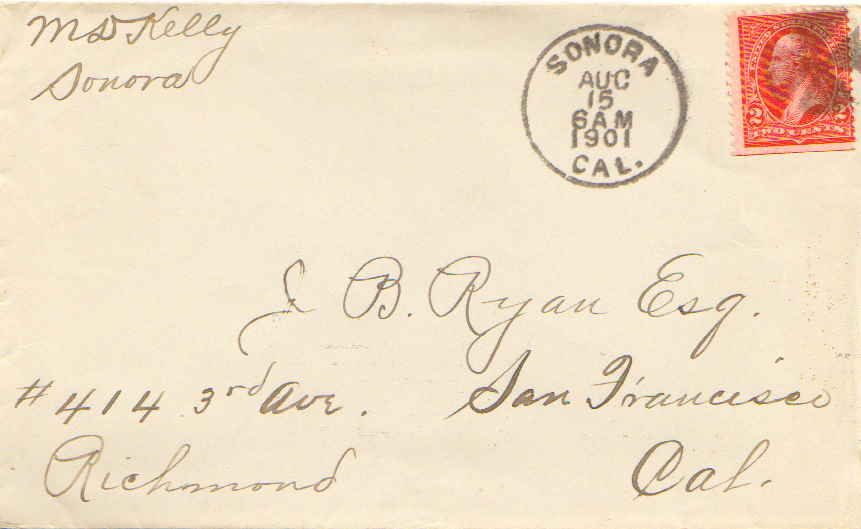 M D Kelly
Sonora
SONORA
AUG
15
6 AM
1901
CAL.
UNITED STATES
2 2
TWO CENTS
J. B. Ryan Esq.
#414 3rd Ave. San Francisco
Richmond Cal.